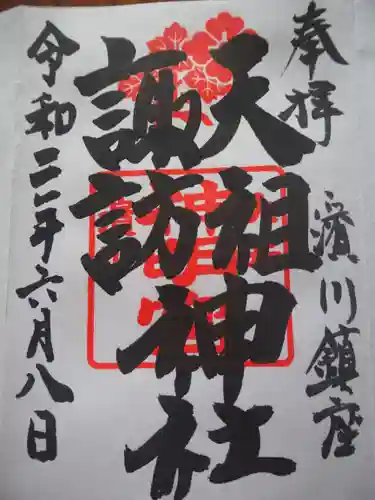 奉拝
濱川鎮座
天祖
諏訪
神社
令和二年六月八日